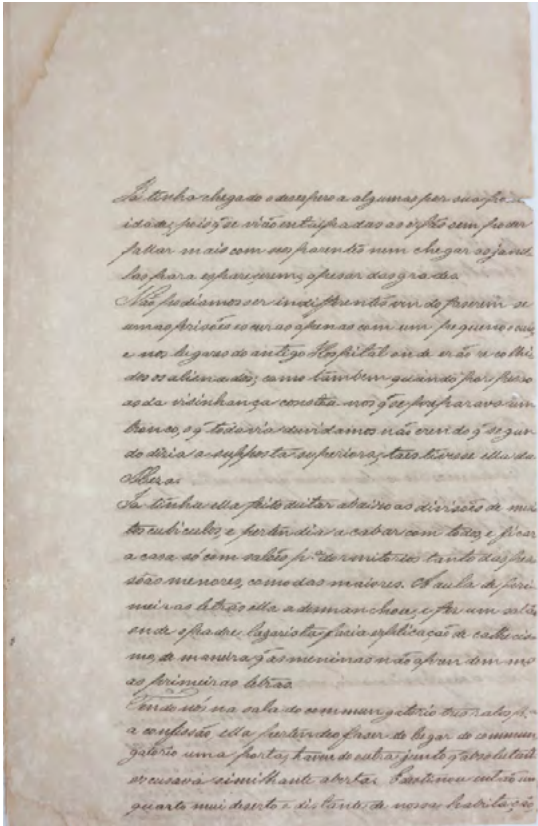 Ja tinha chegado o desespero a algumas por sua pou
idade, pois q̃ se virão entaipradas ao visto sem poder
fallar mais com seos parentes nem chegar as janel
las para espairecerem, apesar das grades.
Não podiamos ser indifferentes vendo faserem se
umas prisões escuras apenas com um pequeno
e nos lugares do antigo Hospital onde erão recolhi
dos os alienados; como tambem quando por pesso
as da visinhança consta-nos q̃ se preparava um
tronco, o q̃ todavia duvidamos não crendo q̃ segun
do diria a supposta superiora, tres tivesse ella da
Meza.
Ja tinha ella feito deitar abaixo as divisões de mui
tos cubiculos, e pertendia acabar com todos, e ficar
a casa só com salões p.ª dormitorios tanto das pes
sôas menores, como das maiores. A aula de pri
meiras letras ella a desmanchou, e fes um salão
onde o padre lazarista fasia explicação de cathecis
mo, de maneira q̃ as meninas não aprendem mais
as primeiras letras.
Tendo nós na sala do communga­torio tres ralos p.ª
a confissão ella pertendeo faser do lugar do commun
gatorio uma porta, havendo outra junto q̃ absolutam
escusava similhante aberta. Destinou então um
quarto mui deserto e distante de nossa habitação